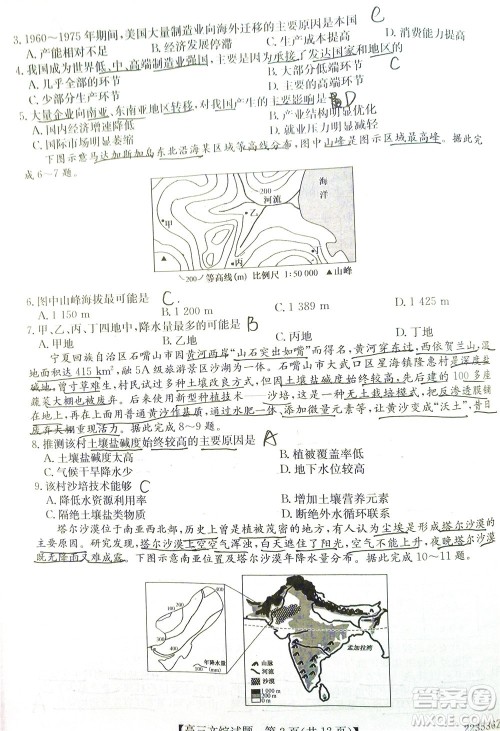 3. 1960～1975年期间,美国大量制造业向海外迁移的主要原因是本国 C
A. 产能相对不足 B. 经济发展停滞 C. 生产成本升高 D. 消费能力提高
4. 我国成为世界低、中、高端制造业强国,主要是因为承接了发达国家和地区的 C
A. 几乎全部的环节 B. 大部分低端环节
C. 少部分生产环节
5. 大量企业向南亚、东南亚地区转移,对我国产生的主要影响是 D
A. 国内经济增速降低
C. 国际市场明显萎缩 D. 就业压力明显减轻
下图示意马达加斯加岛东北沿海某区域等高线分布,图中山峰是图示区域最高峰。据此完
成6～7题。
200
河流
海
洋
甲
乙
丙
丁
200 等高线(m) 比例尺 1:50 000 ▲山峰
6. 图中山峰海拔最可能是 C
A. 1 150 m B. 1 200 m C. 1 389 m D. 1 425 m
7. 甲、乙、丙、丁四地中,降水量最多的可能是 B
A. 甲地 B. 乙地 C. 丙地 D. 丁地
宁夏回族自治区石嘴山市因黄河西岸“山石突出如嘴”而得名,黄河穿东过,西依贺兰山,沙
湖面积达415 km²,融5A级旅游景区沙湖为一体。石嘴山市大武口区星海镇隆惠村是深度盐
碱地,曾寸草难生,村民试过多种土壤改良方式,但因土壤盐碱度始终较高,已建起的100多座
蔬菜大棚也被弃用。后来,依靠新型种植技术——沙培,这是一种无土栽培方式,把反渗透膜技
术、土工布和黄沙作基质,通过水肥一体、功能菌等技术应用,让黄沙变成“沃土”,昔日
废弃大棚重现活力。据此完成8～9题。
8. 推测该村土壤盐碱度始终较高的主要原因是 A
A. 土壤盐碱度太高 B. 植被覆盖度低
C. 气候干旱降水少 D. 地下水位较高
9. 该村沙培技术能够 C
A. 降低水资源利用率 B. 增加土壤营养元素
C. 隔绝土壤盐类物质 D. 断绝外水循环联系
塔尔沙漠位于南亚西北部,历史上曾是植被茂密的地方,有人认为尘埃是形成塔尔沙漠的
主要原因。研究发现,塔尔沙漠上空空气浑浊,白天遮住了阳光,空气不能上升,夜晚塔尔沙漠
既无降雨又难成露。下图示意南亚位置及塔尔沙漠年降水量分布。据此完成10～11题。
年降水量
(mm)
孟加拉湾
山脉
河流
沙漠
1000 m
200 m
0 m
【高三文综试题 第2页(共12页)】